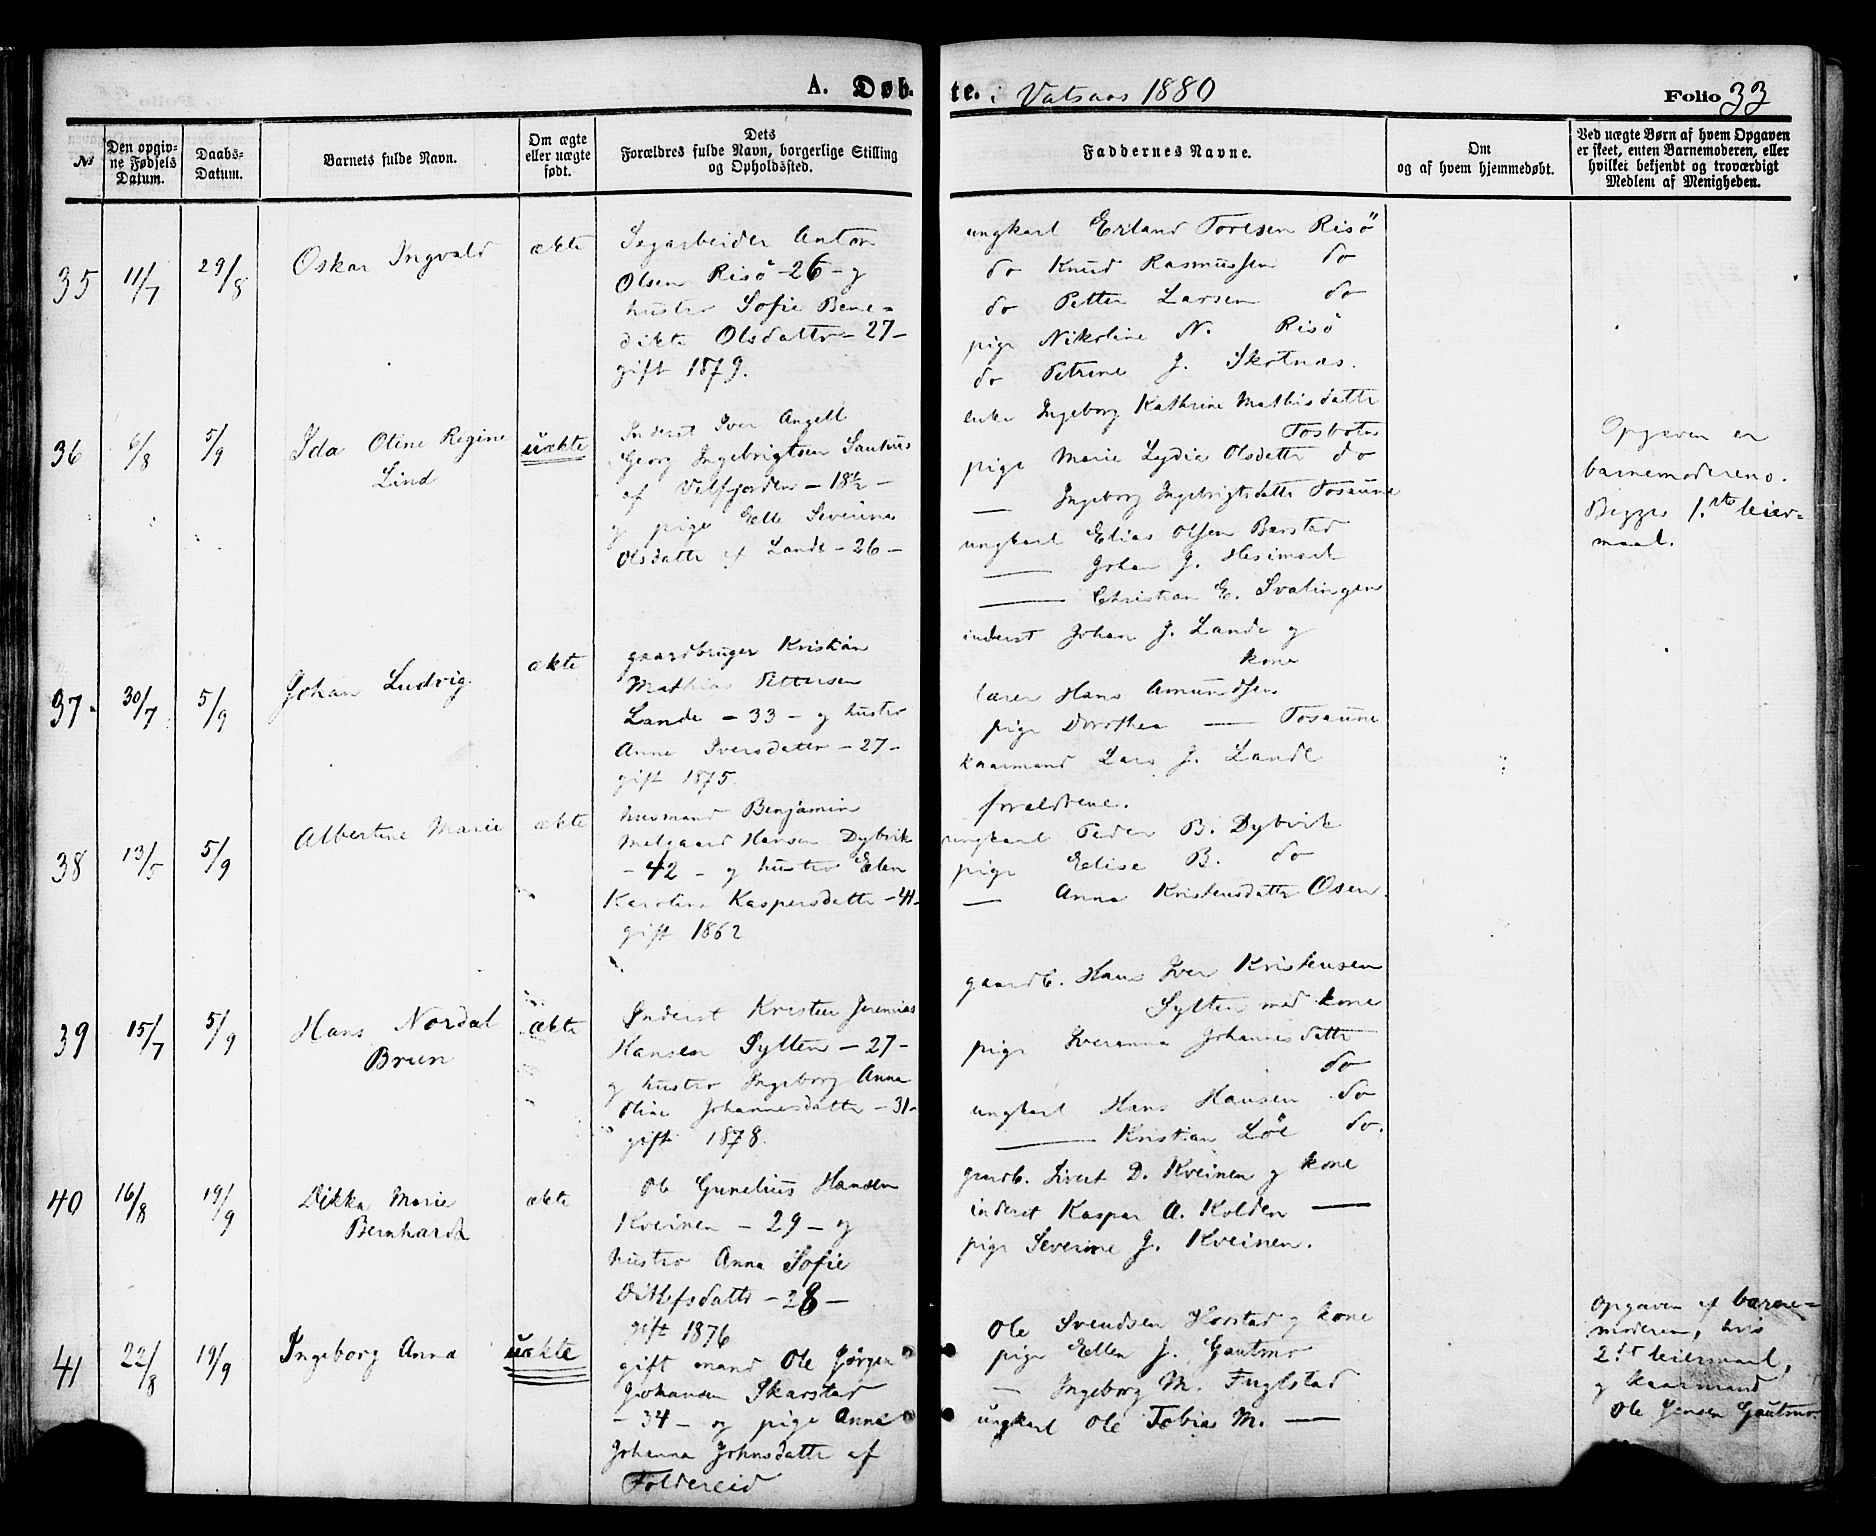 A. Døb-
te. i Vatsaas 1880
Folio 33
№
Den opgiv-
ne Fødsels
Datum.
Daabs-
Datum.
Barnets fulde Navn.
Om ægte
eller uægte
født.
Dets
Forældres fulde Navn, borgerlige Stilling
og Opholdssted.
Faddernes Navne.
Om
og af hvem hjemmedøbt.
Ved uægte Børn af hvem Opgaven
er skeet, enten Barnemoderen, eller
hvilket bekjendt og troværdigt
Medlem af Menigheden.
35 11/7 29/8 Oskar Ingvald ækte
Sagarbeider Anton
Olsen Risö - 26 - og
hustro Sofie Bene-
dikte Olsdattr - 27 -
gift 1879.
ungkarl Erland Toresen Risö
do Knud Rasmussen do
do Petter Larsen do
pige Nikoline N. Risö
do Petrine J. Skotnæs.
36 6/8 5/9 Ida Oline Regine
Lind
uækte
Inderst Iver Angell
Georg Ingebrigtsen
af Velfjorden - 18½ -
og pige Elle Severine
Olsdattr af Lande - 26 -
enke Ingeborg Kathrine Mathisdattr
Tosbotn
pige Marie Lydia Olsdattr do
— Ingeborg Ingebrigtsdattr Tosaune
ungkarl Elias Olsen Barstad
— Johan J. Heimark
— Christian E. Svalingen
Opgaven er
barnemoderens.
Begges 1.ste leier-
maal.
37. 30/7 5/9 Johan Ludvig ækte
gaardbruger Kristian
Mathias Pettersen
Lande - 33 - og hustro
Anne Iversdattr - 27 -
gift 1875.
inderst Johan J. Lande og
kone
lærer Hans Amundsen
pige Dorothea — Tosaune
kaarmand Lars J. Lande
forældrene.
38 13/5 5/9 Albertine Marie ækte
husmand Benjamin
Melgaard Hansen Dybvik
- 42 - og hustro Elen
Karoline Kaspersdattr - 41 -
gift 1862
ungkarl Peder B. Dybvik
pige Elise B. do
— Anna Kristensdattr Osen.
39 15/7 5/9 Hans Nordal
Brun
ækte
Inderst Kristen Jeremias
Hansen Sylten - 27 -
og hustro Ingeborg Anna
Oline Johannesdattr - 31 -
gift 1878.
gaardb. Hans Iver Kristensen
Sylten med kone
pige Iveranna Johannesdattr
do
ungkarl Hans Hansen do
— Kristian Löe do.
40 16/8 19/9 Dikka Marie
Bernharda
ækte
Ole Gunelius Hansen
Kveinen - 29 - og
hustro Anna Sofie
Ditlefsdattr - 28 -
gift 1876
gaardb. Sivert D. Kveinen og kone
inderst Kaspar A. Kolden —
pige Severine J. Kveinen.
41 22/8 19/9 Ingeborg Anna uækte
gift mand Ole Jørgen
Johansen Skarstad
- 34 - og pige Anne
Johanna Johnsdattr af
Foldereid
Ole Svendsen Horstad og kone
pige Ellen J. Gautmo
— Ingeborg M. Fuglstad
ungkarl Ole Tobias M. —
Opgaven af barne-
moderen, hvis
2.det leiermaal,
og kaarmand
Ole Jensen Gautmo